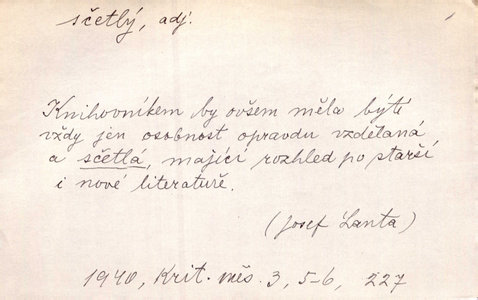 sčetlý, adj.
Knihovníkem by ovšem měla býti
vždy jen osobnost opravdu vzdělaná
a sčetlá, mající rozhled po starší
i nové literatuře.
(Josef Lanta)
1940, Krit. měs. 3, 5-6, 227